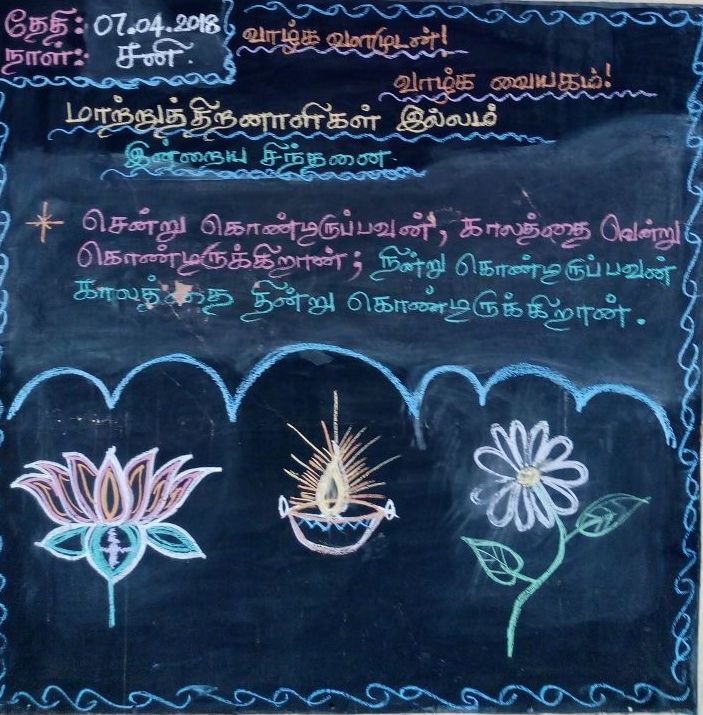 தேதி: 07.04.2018
நாள்: சனி.
வாழ்க வளமுடன்!
வாழ்க வையகம்!
மாற்றுத்திறனாளிகள் இல்லம்
இன்றைய சிந்தனை.
சென்று கொண்டிருப்பவன், காலத்தை வென்று
கொண்டிருக்கிறான்; நின்று கொண்டிருப்பவன்
காலத்தை தின்று கொண்டிருக்கிறான்.